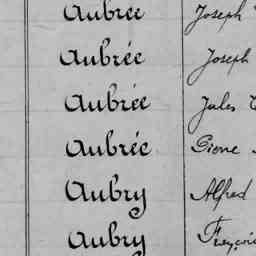 Aubrée Joseph
Aubrée Joseph
Aubrée Jules
Aubrée Pierre
Aubry Alfred
Aubry